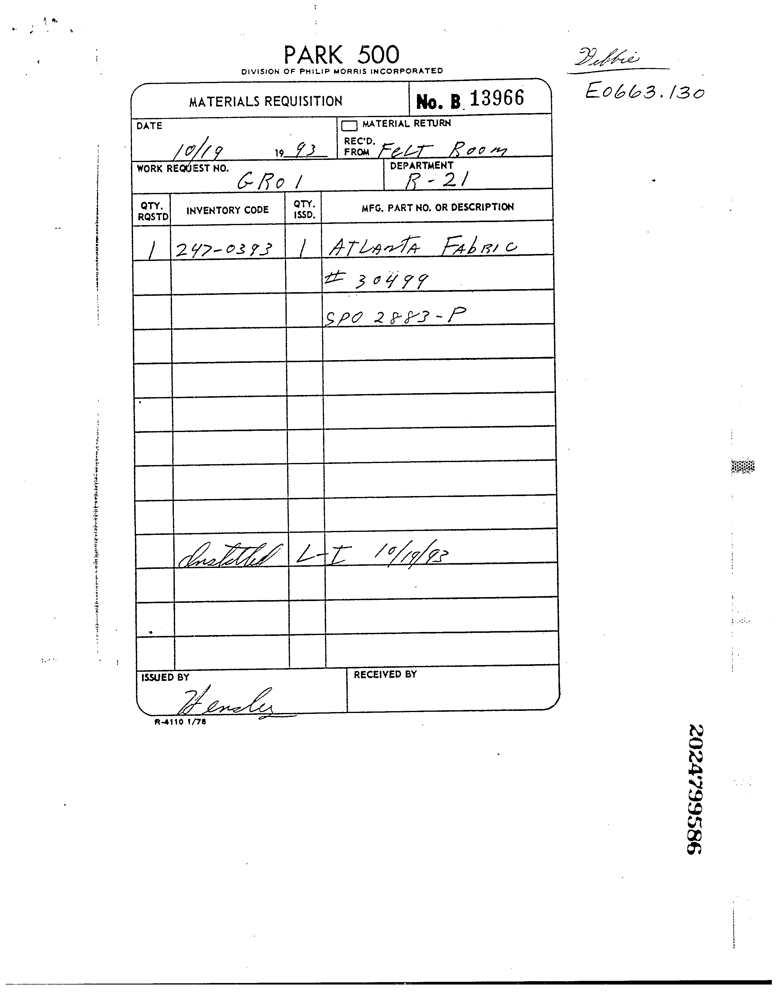 PARK 500
DIVISION OF PHILIP MORRIS INCORPORATED
Debbie
E0663.130
MATERIALS REQUISITION
No. B 13966
DATE
10/19 1993
MATERIAL RETURN
REC'D. FROM Felt Room
WORK REQUEST NO.
GR01
DEPARTMENT
R-21
QTY. RQSTD
INVENTORY CODE
QTY. ISSD.
MFG. PART NO. OR DESCRIPTION
1 247-0393 1 ATLANTA FABRIC
# 30499
SPO 2883-P
Installed L-I 10/19/93
ISSUED BY
Hensley
RECEIVED BY
R-4110 1/78
2024799586